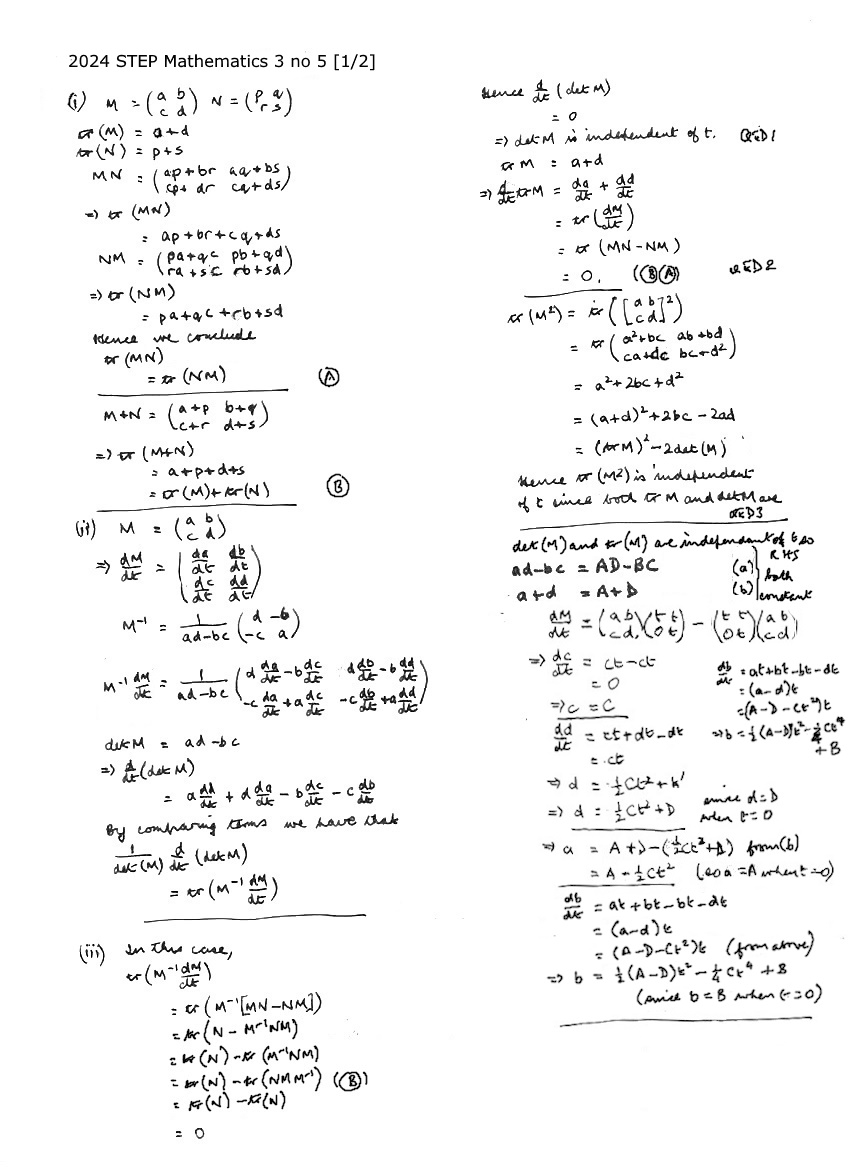 2024 STEP Mathematics 3 no 5 [1/2]
(i) M = (a b / c d) N = (p q / r s)
tr(M) = a+d
tr(N) = p+s
MN = (ap+br aq+bs / cp+dr cq+ds)
=> tr(MN)
= ap+br+cq+ds
NM = (pa+qc pb+qd / ra+sc rb+sd)
=> tr(NM)
= pa+qc+rb+sd
Hence we conclude
tr(MN)
= tr(NM) (A)
M+N = (a+p b+q / c+r d+s)
=> tr(M+N)
= a+p+d+s
= tr(M)+tr(N) (B)
(ii) M = (a b / c d)
=> dM/dt = (da/dt db/dt / dc/dt dd/dt)
M⁻¹ = 1/(ad-bc) (d -b / -c a)
M⁻¹ dM/dt = 1/(ad-bc) (d da/dt - b dc/dt d db/dt - b dd/dt / -c da/dt + a dc/dt -c db/dt + a dd/dt)
det M = ad-bc
=> d/dt (det M)
= a dd/dt + d da/dt - b dc/dt - c db/dt
By comparing terms we have that
1/det(M) d/dt (det M)
= tr(M⁻¹ dM/dt)
(iii) In this case,
tr(M⁻¹ dM/dt)
= tr(M⁻¹[MN-NM])
= tr(N - M⁻¹NM)
= tr(N) - tr(M⁻¹NM)
= tr(N) - tr(NMM⁻¹) ((B))
= tr(N) - tr(N)
= 0
Hence d/dt (det M)
= 0
=> det M is independent of t. QED1
tr M = a+d
=> d/dt tr M = da/dt + dd/dt
= tr(dM/dt)
= tr(MN-NM)
= 0. ((B)(A)) QED2
tr(M²) = tr([a b / c d]²)
= tr(a²+bc ab+bd / ca+dc bc+d²)
= a²+2bc+d²
= (a+d)²+2bc-2ad
= (tr M)²-2det(M)
Hence tr(M²) is independent
of t since both tr M and det M are
QED3
det(M) and tr(M) are independant of t so
ad-bc = AD-BC (a) RHS
a+d = A+D (b) both constant
dM/dt = (a b / c d)(t t / 0 t) - (t t / 0 t)(a b / c d)
=> dc/dt = ct-ct
= 0
=> c = C
db/dt = at+bt-bt-dt
= (a-d)t
= (A-D-Ct²)t
=> b = ½(A-D)t²-¼Ct⁴
+B
dd/dt = ct+dt-dt
= ct
=> d = ½Ct²+k'
=> d = ½Ct²+D since d=D
when t=0
=> a = A+D-(½Ct²+D) from (b)
= A-½Ct² (so a=A when t=0)
db/dt = at+bt-bt-dt
= (a-d)t
= (A-D-Ct²)t (from above)
=> b = ½(A-D)t²-¼Ct⁴+B
(since b=B when t=0)